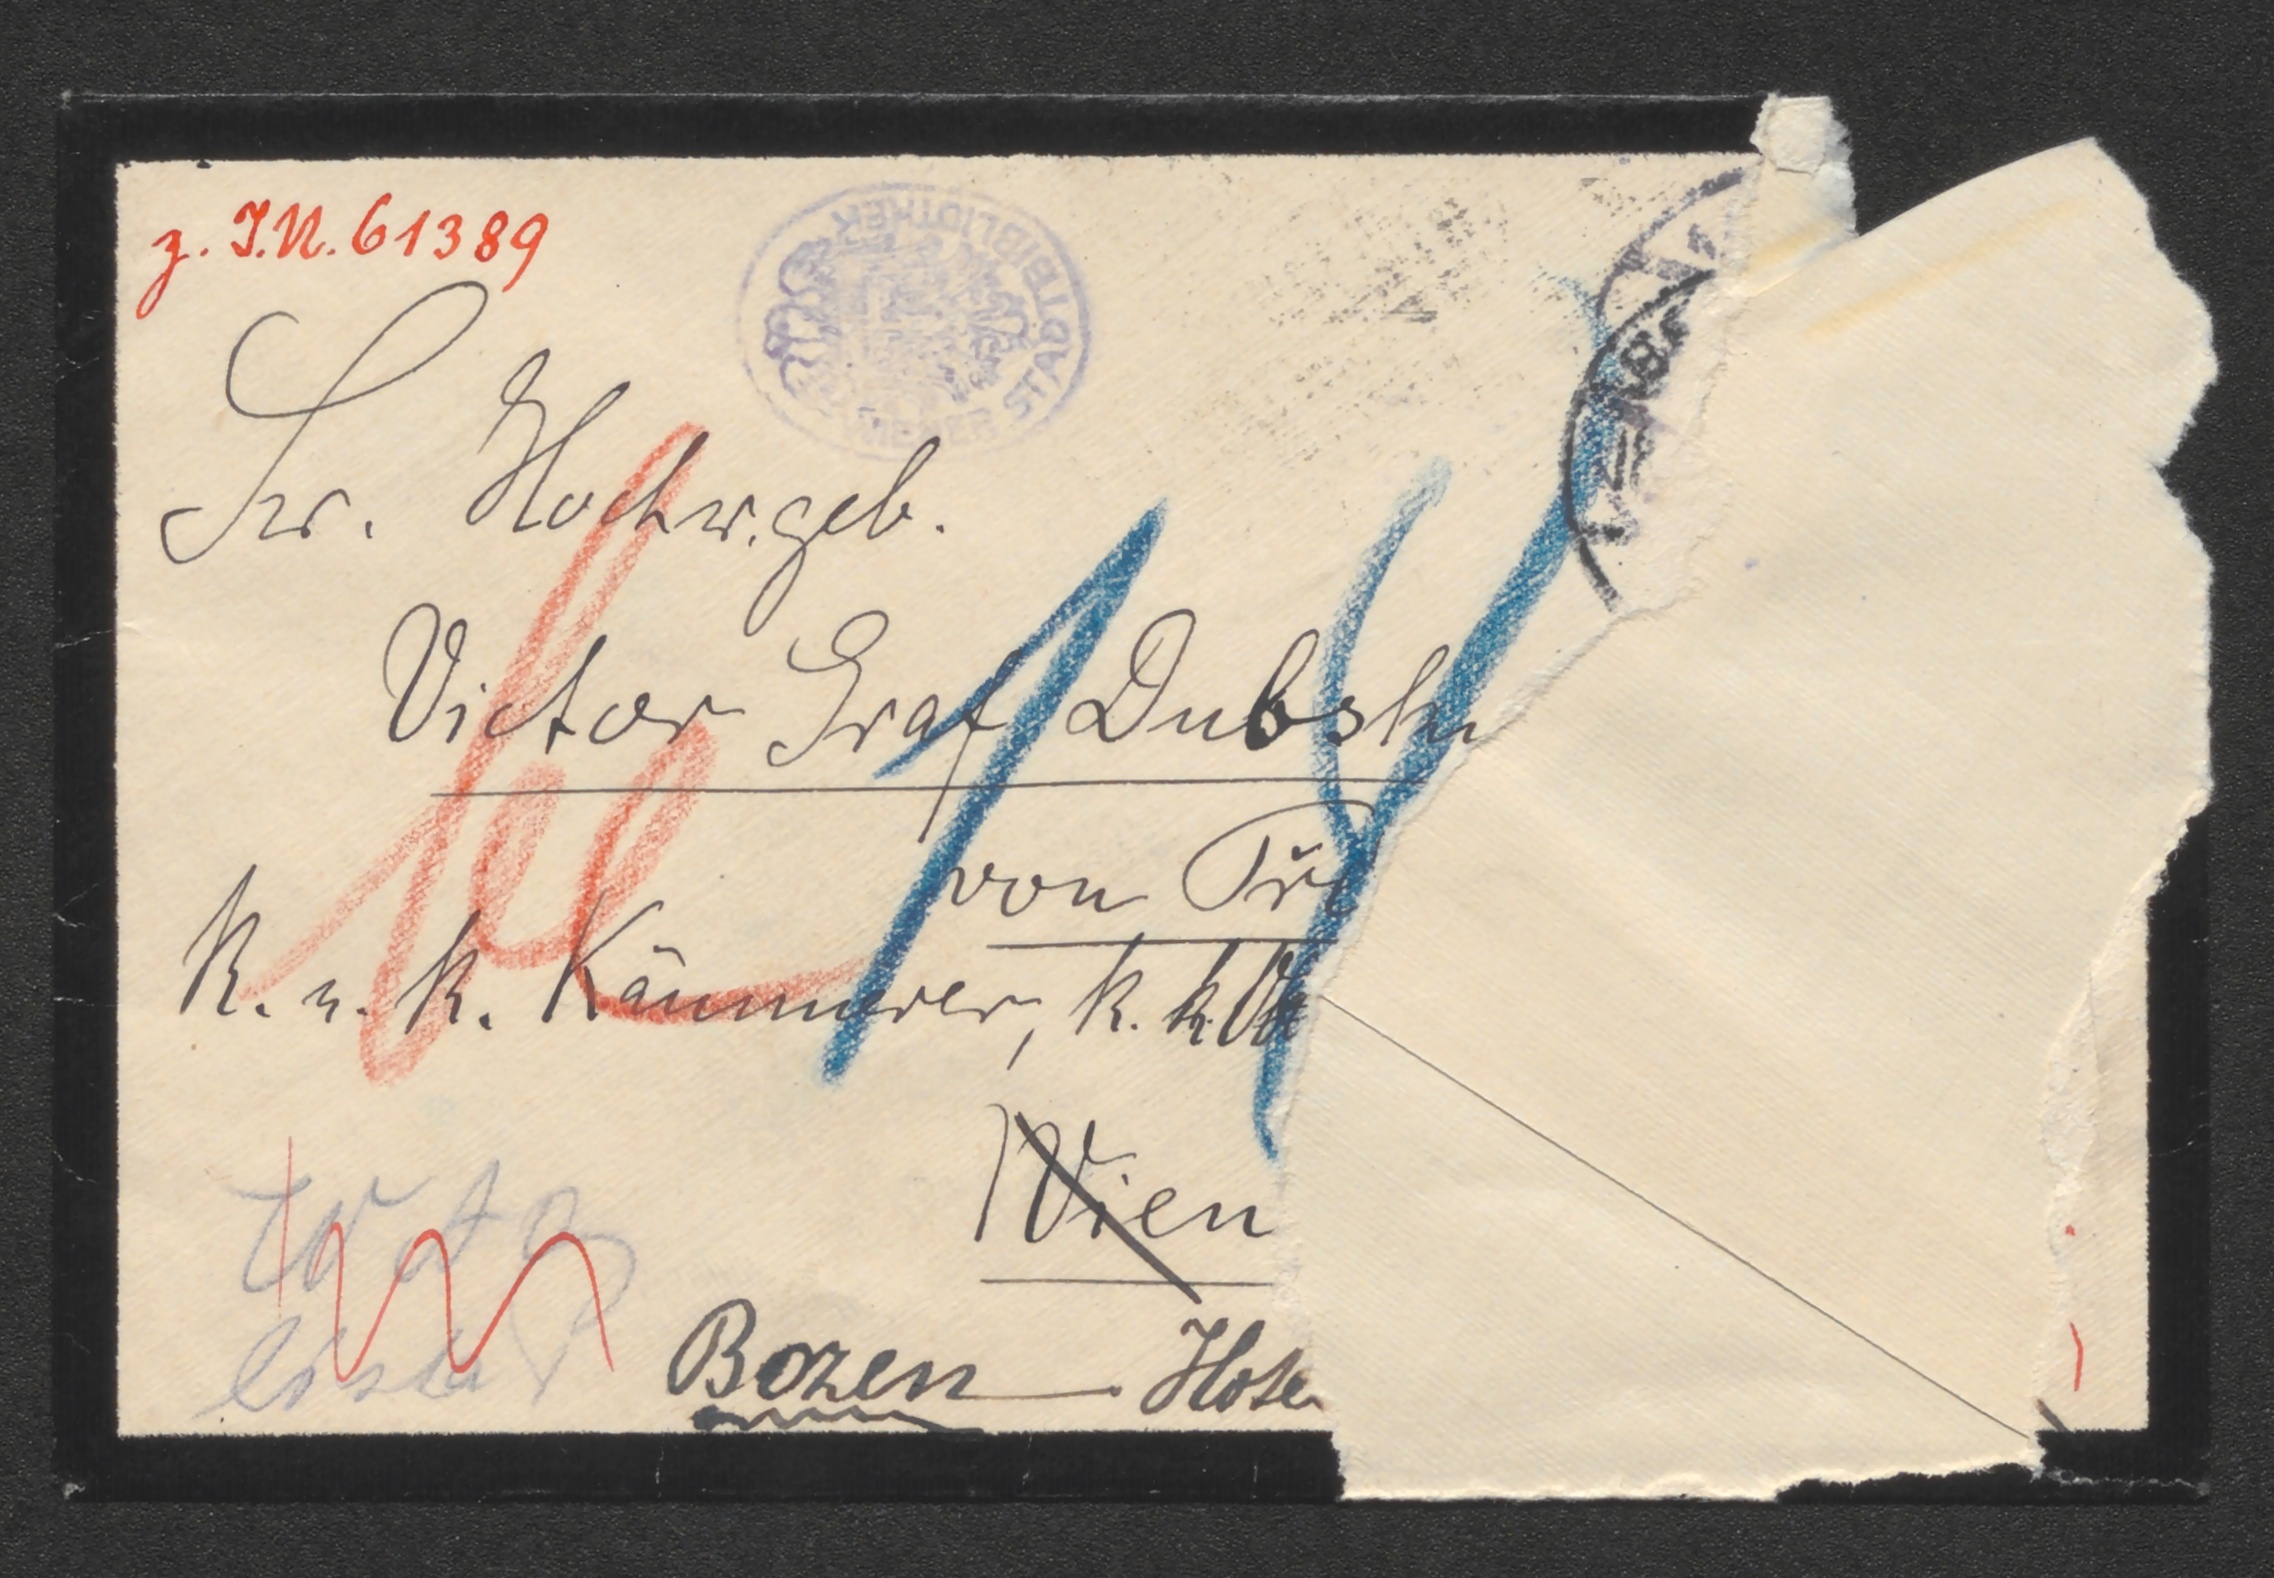 z. I.N. 61389
WIENER STADTBIBLIOTHEK
Sr. Hochw.geb.
14
Victor Graf Dubsky
von Tře
K. u. K. Kämmerer, k. k.
Wien
Bozen Hote